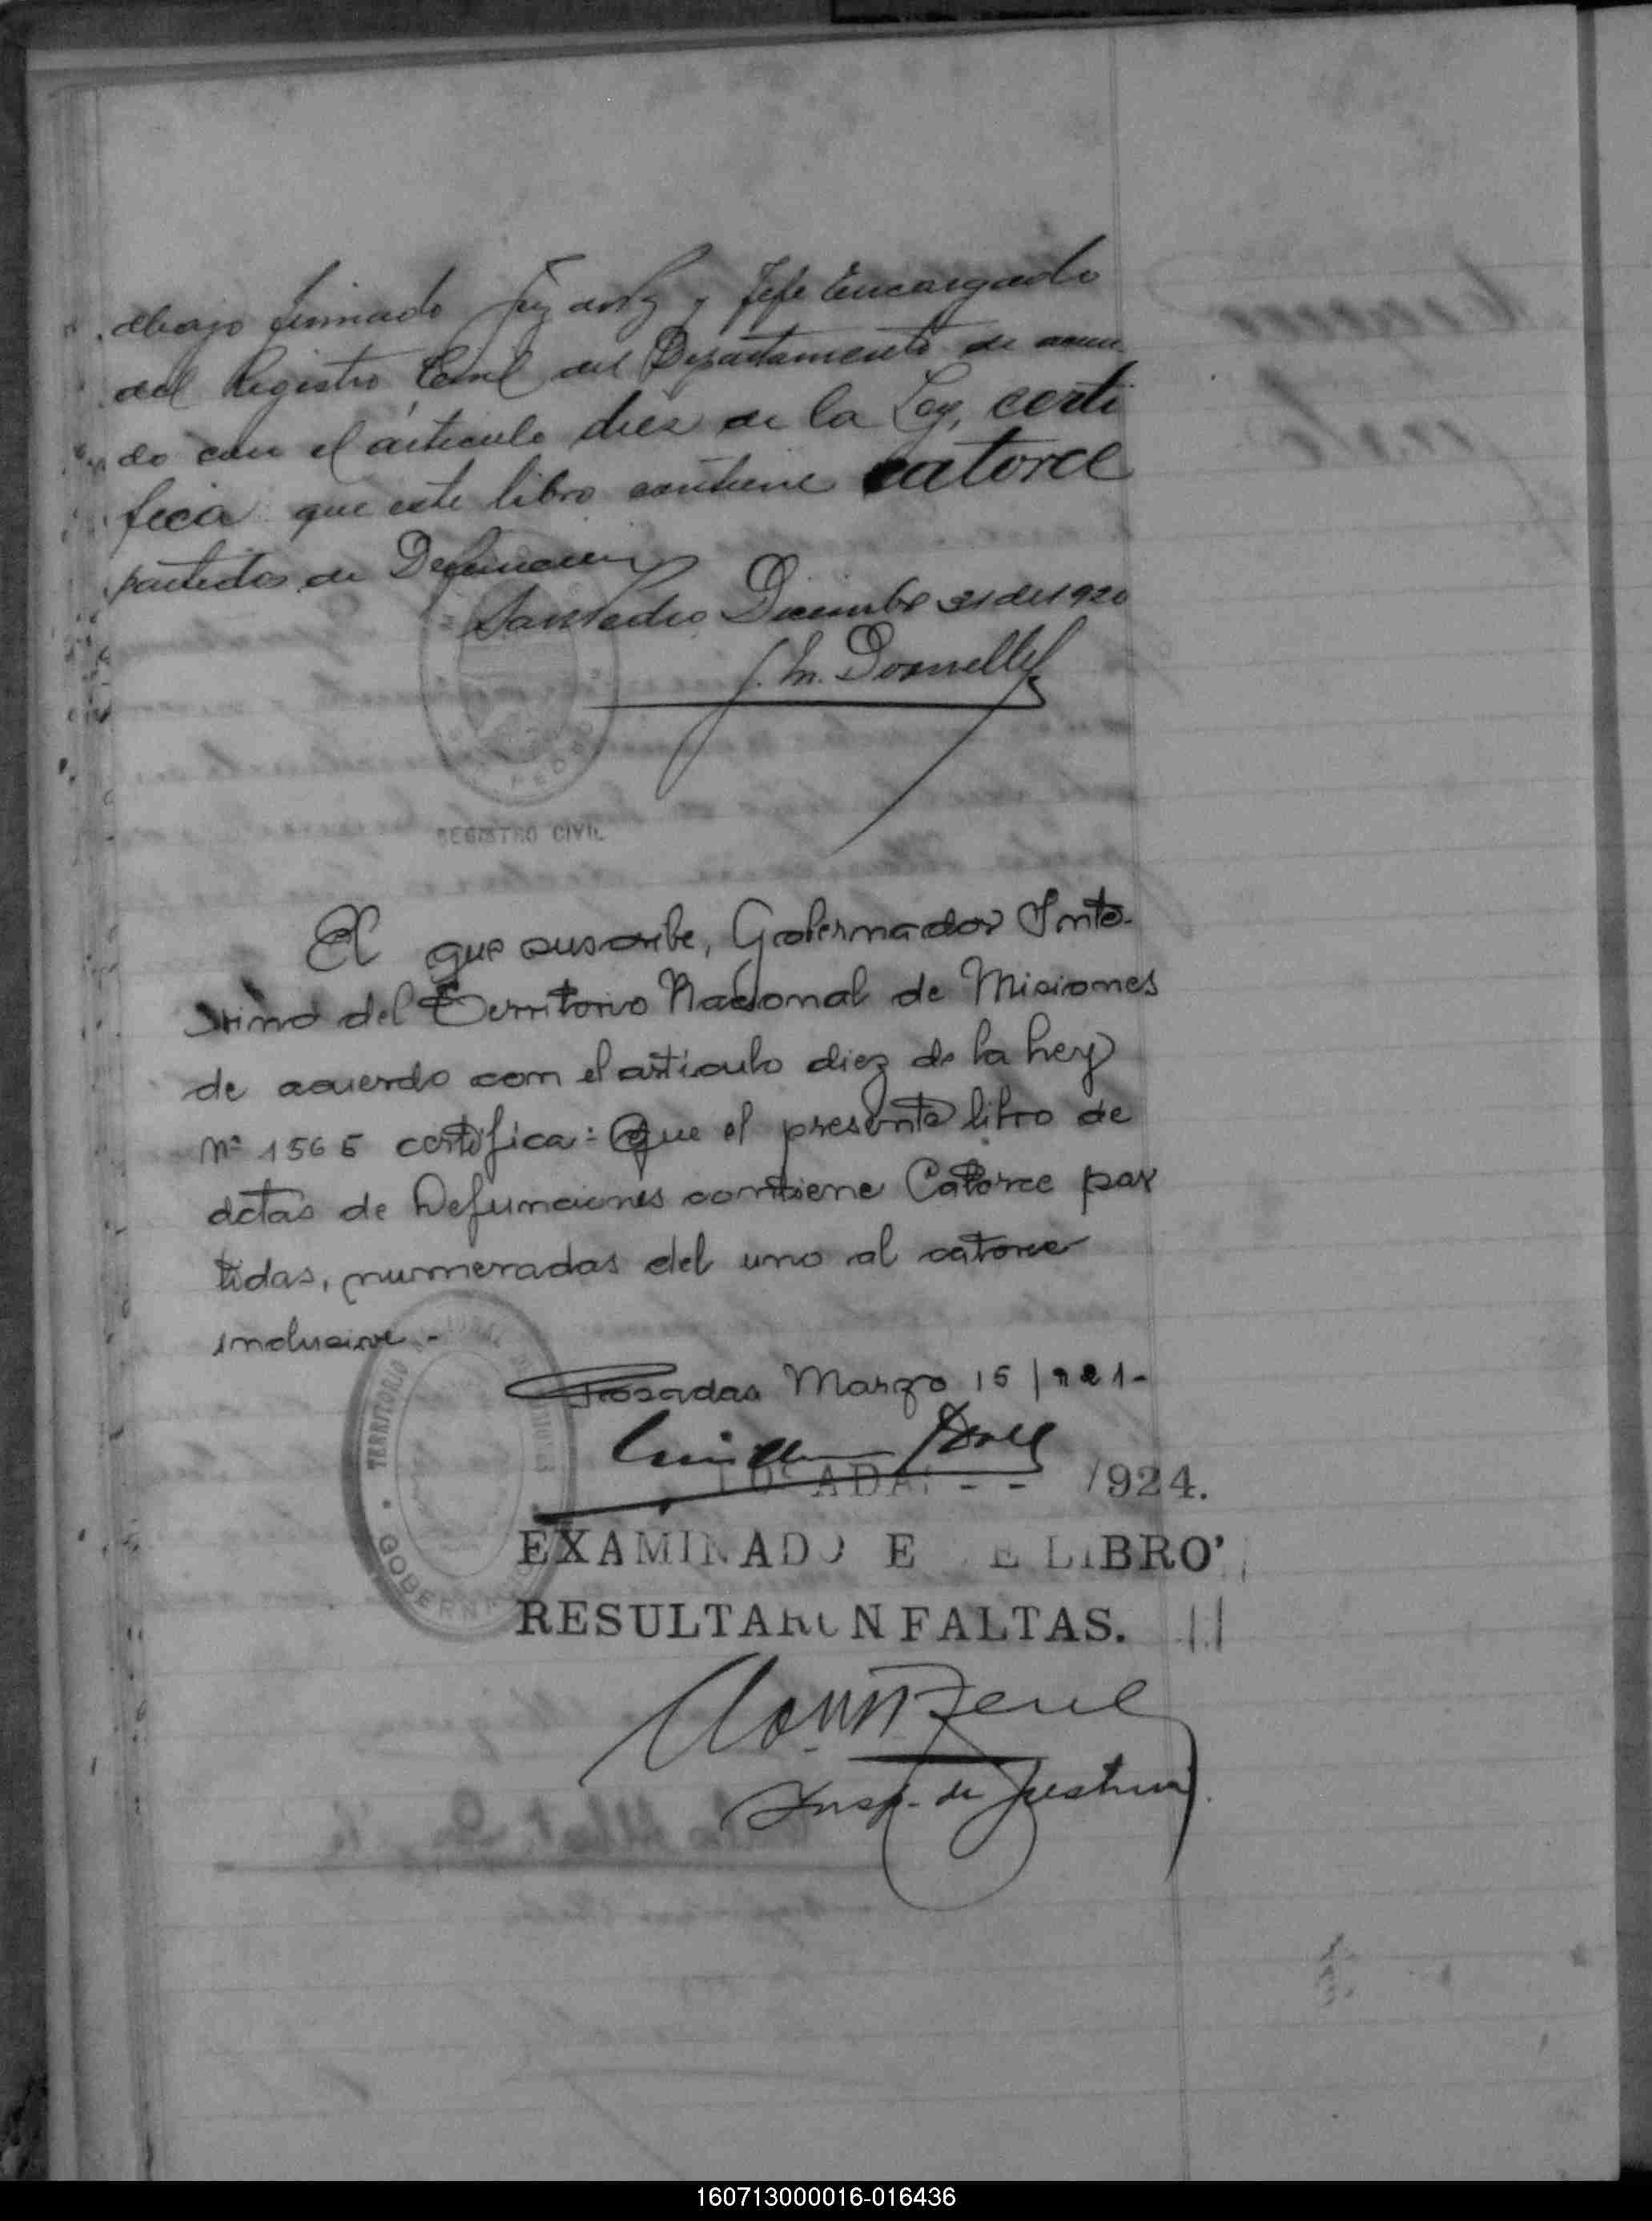 abajo firmado Juez de Paz y Jefe Encargado
del Registro Civil del Departamento de acuer
do con el artículo diez de la Ley, certi
fica que este libro contiene catorce
partidos de Defunción
San Pedro Diciembre 31 de 1920
J. M. Donnelly
PEDRO
REGISTRO CIVIL
El que suscribe, Gobernador Inte-
rino del Territorio Nacional de Misiones
de acuerdo con el artículo diez de la Ley
Nº 1565 certifica: Que el presente libro de
actas de Defunciones contiene Catorce par
tidas, numeradas del uno al catorce
inclusive.-
TERRITORIO NACIONAL DE MISIONES
GOBERNACION
Posadas Marzo 15/921-
POSADAS - - 1924.
EXAMINADO ESTE LIBRO
RESULTARON FALTAS.
Insp. de Justicia
160713000016-016436